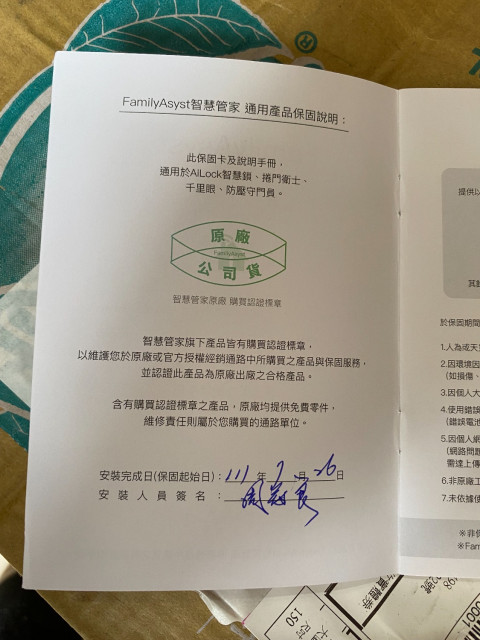 FamilyAsyst智慧管家 通用產品保固說明：
此保固卡及說明手冊，
適用於AILock智慧鎖、捲門衛士、
千里眼、防壓守門員。
原廠
FamilyAsyst
公司貨
智慧管家原廠 購買認證標章
智慧管家旗下產品皆有購買認證標章，
以維護您於原廠或官方授權經銷通路中所購買之產品與保固服務，
並認證此產品為原廠出廠之合格產品。
含有購買認證標章之產品，原廠均提供免費零件，
維修責任則屬於您購買的通路單位。
安裝完成日(保固起始日)：111 年 7 月 26 日
安裝人員簽名：
提供以
其
於保固期間
1.人為或天
2.因環境因
（如損傷、
3.因個人大
4.使用錯誤
（錯誤電池
5.因個人網
（網路問題
雷達上傳
6.非原廠工
7.未依據使
※非保
※Fam
®
150